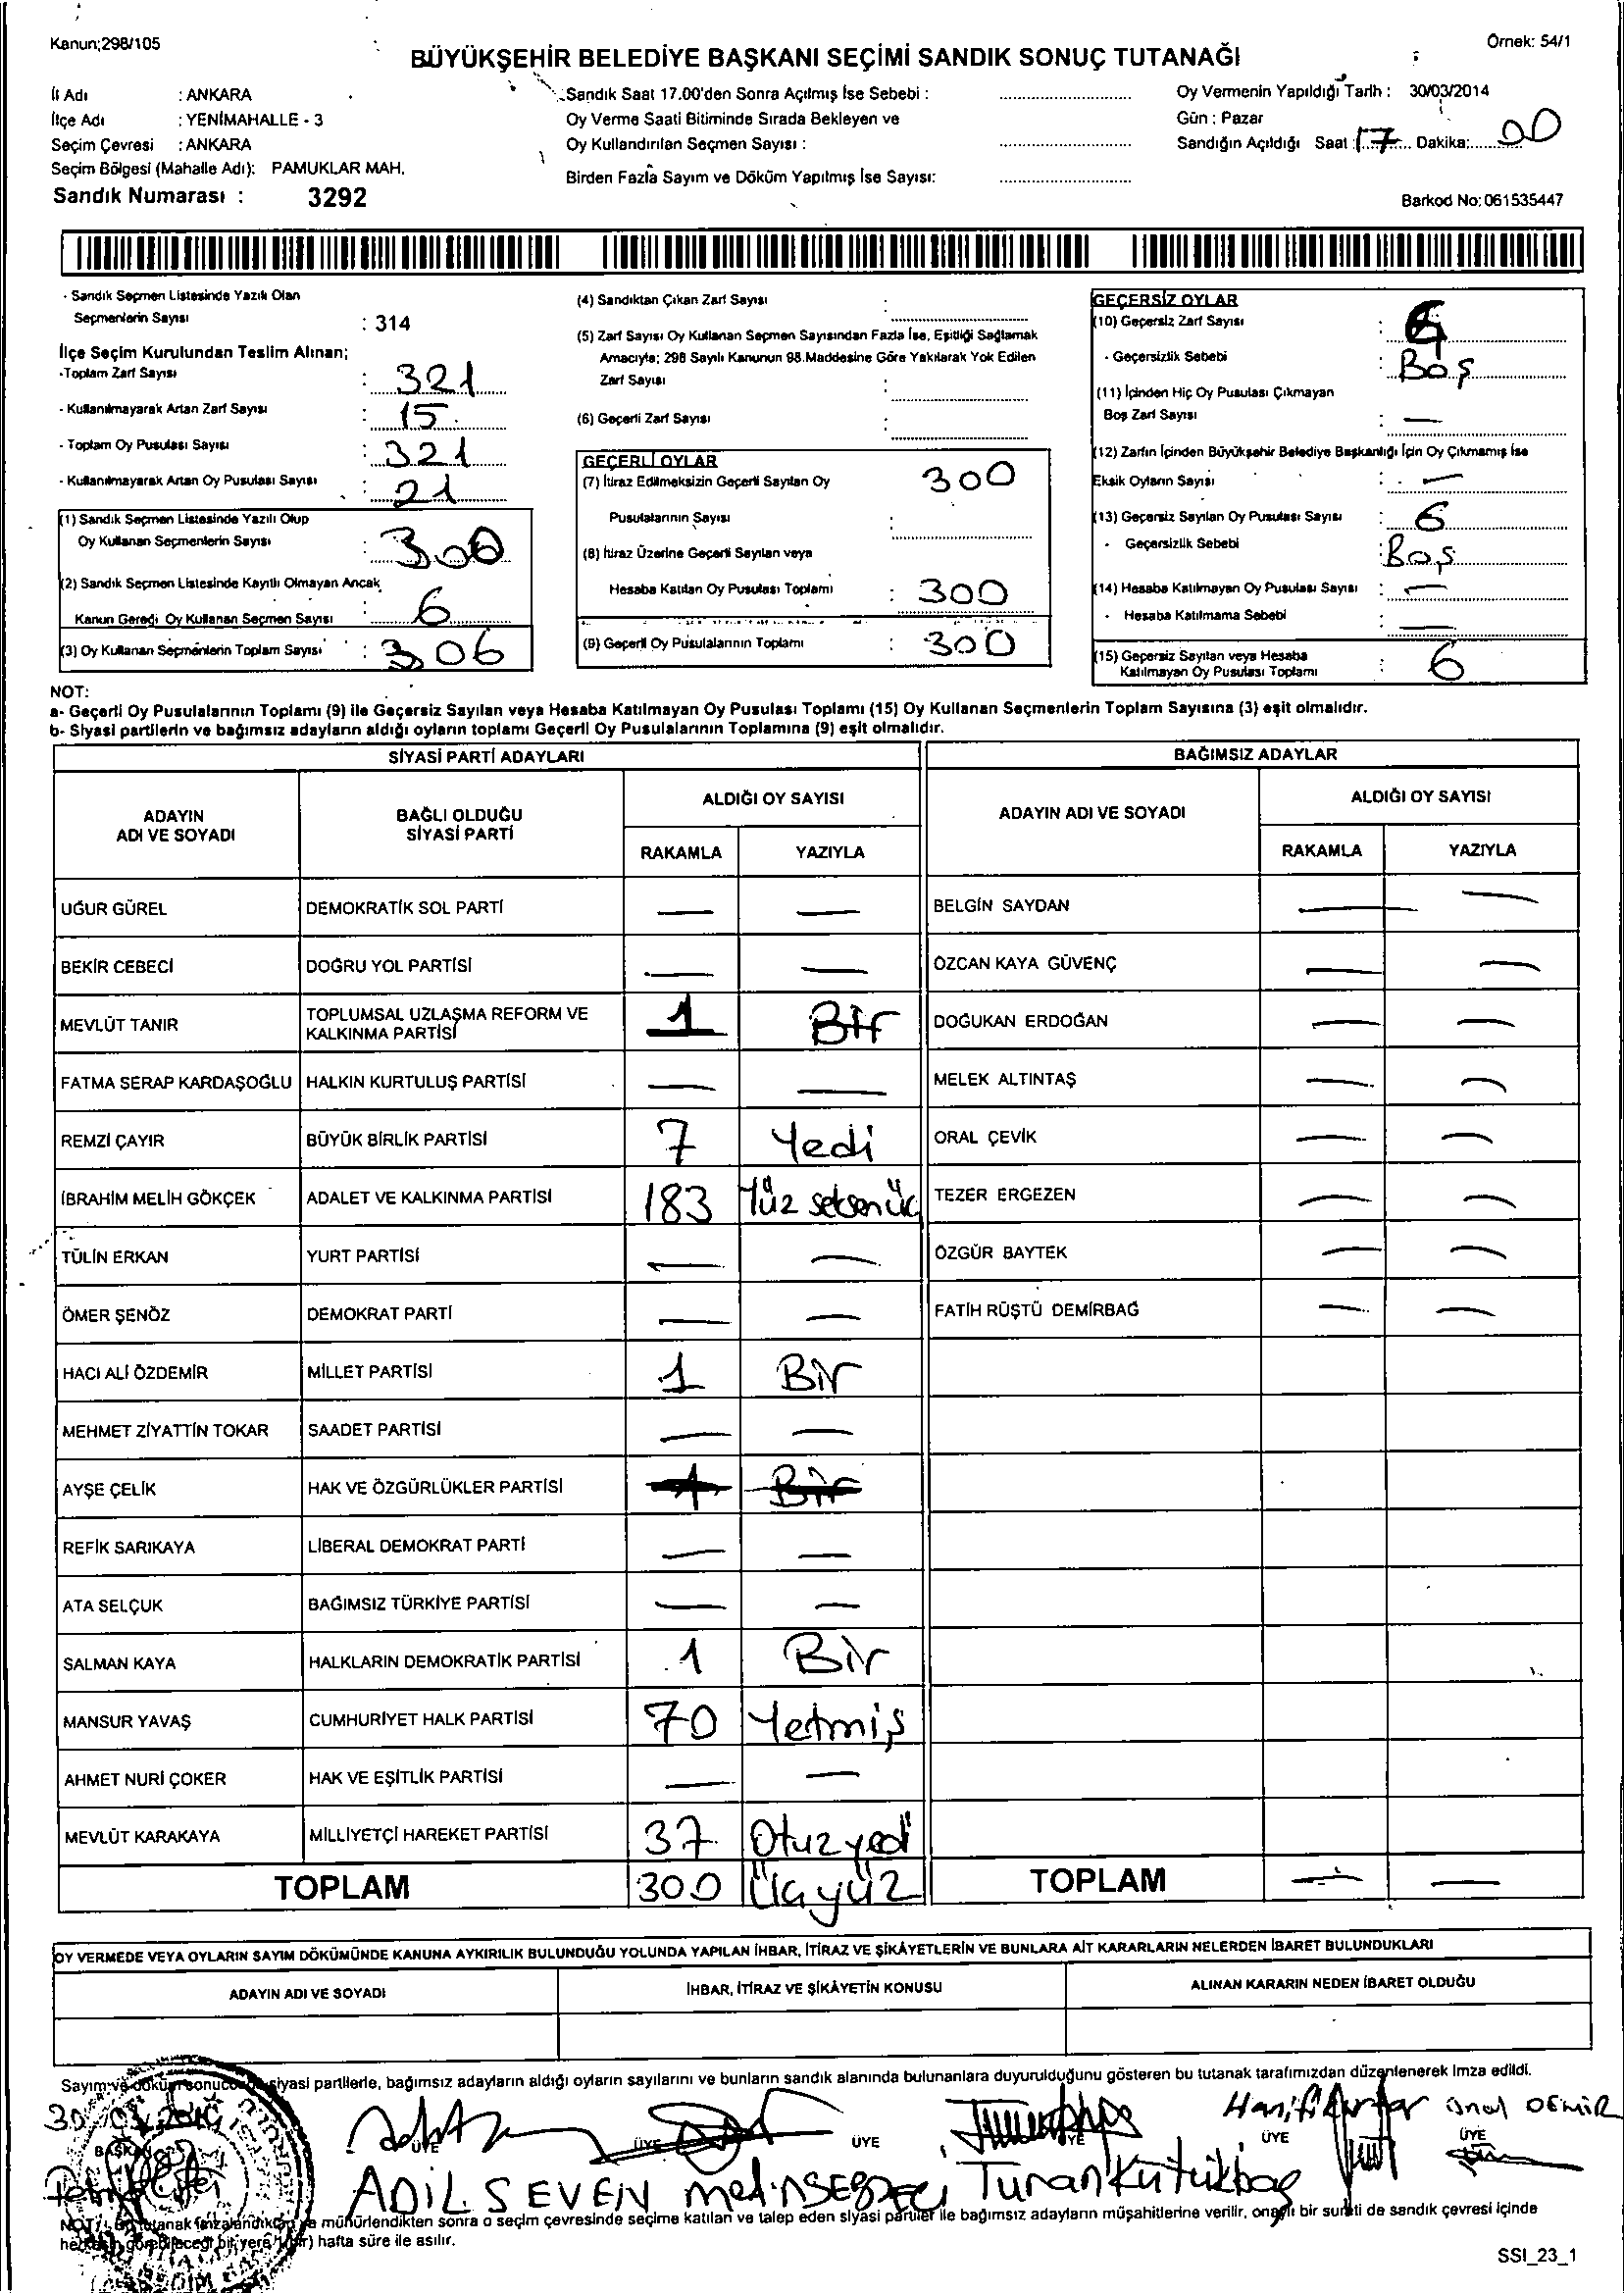 Kanun;298/105
Örnek: 54/1
BÜYÜKŞEHİR BELEDİYE BAŞKANI SEÇİMİ SANDIK SONUÇ TUTANAĞI
İl Adı : ANKARA
İlçe Adı : YENİMAHALLE - 3
Seçim Çevresi : ANKARA
Seçim Bölgesi (Mahalle Adı): PAMUKLAR MAH.
Sandık Numarası : 3292
Sandık Saat 17.00'den Sonra Açılmış İse Sebebi :
Oy Verme Saati Bitiminde Sırada Bekleyen ve
Oy Kullandırılan Seçmen Sayısı :
Birden Fazla Sayım ve Döküm Yapılmış İse Sayısı:
Oy Vermenin Yapıldığı Tarih : 30/03/2014
Gün : Pazar
Sandığın Açıldığı Saat : 17 Dakika: 00
Barkod No: 061535447
- Sandık Seçmen Listesinde Yazılı Olan
Seçmenlerin Sayısı : 314
İlçe Seçim Kurulundan Teslim Alınan;
-Toplam Zarf Sayısı : 321
- Kullanılmayarak Artan Zarf Sayısı : 15
- Toplam Oy Pusulası Sayısı : 321
- Kullanılmayarak Artan Oy Pusulası Sayısı : 21
(1) Sandık Seçmen Listesinde Yazılı Olup
Oy Kullanan Seçmenlerin Sayısı : 300
(2) Sandık Seçmen Listesinde Kayıtlı Olmayan Ancak
Kanun Gereği Oy Kullanan Seçmen Sayısı : 6
(3) Oy Kullanan Seçmenlerin Toplam Sayısı : 306
(4) Sandıktan Çıkan Zarf Sayısı :
(5) Zarf Sayısı Oy Kullanan Seçmen Sayısından Fazla İse, Eşitliği Sağlamak
Amacıyla; 298 Sayılı Kanunun 98.Maddesine Göre Yakılarak Yok Edilen
Zarf Sayısı :
(6) Geçerli Zarf Sayısı :
GEÇERLİ OYLAR
(7) İtiraz Edilmeksizin Geçerli Sayılan Oy 300
Pusulalarının Sayısı :
(8) İtiraz Üzerine Geçerli Sayılan veya
Hesaba Katılan Oy Pusulası Toplamı : 300
(9) Geçerli Oy Pusulalarının Toplamı : 300
GEÇERSİZ OYLAR
(10) Geçersiz Zarf Sayısı :
- Geçersizlik Sebebi : Boş
(11) İçinden Hiç Oy Pusulası Çıkmayan
Boş Zarf Sayısı : —
(12) Zarfın İçinden Büyükşehir Belediye Başkanlığı İçin Oy Çıkmamış İse
Eksik Oyların Sayısı : —
(13) Geçersiz Sayılan Oy Pusulası Sayısı : 6
- Geçersizlik Sebebi : Boş
(14) Hesaba Katılmayan Oy Pusulası Sayısı : —
- Hesaba Katılmama Sebebi : —
(15) Geçersiz Sayılan veya Hesaba
Katılmayan Oy Pusulası Toplamı : 6
NOT:
a- Geçerli Oy Pusulalarının Toplamı (9) ile Geçersiz Sayılan veya Hesaba Katılmayan Oy Pusulası Toplamı (15) Oy Kullanan Seçmenlerin Toplam Sayısına (3) eşit olmalıdır.
b- Siyasi partilerin ve bağımsız adayların aldığı oyların toplamı Geçerli Oy Pusulalarının Toplamına (9) eşit olmalıdır.
SİYASİ PARTİ ADAYLARI
ADAYIN
ADI VE SOYADI
BAĞLI OLDUĞU
SİYASİ PARTİ
ALDIĞI OY SAYISI
RAKAMLA YAZIYLA
UĞUR GÜREL DEMOKRATİK SOL PARTİ — —
BEKİR CEBECİ DOĞRU YOL PARTİSİ — —
MEVLÜT TANIR TOPLUMSAL UZLAŞMA REFORM VE
KALKINMA PARTİSİ 1 Bir
FATMA SERAP KARDAŞOĞLU HALKIN KURTULUŞ PARTİSİ — —
REMZİ ÇAYIR BÜYÜK BİRLİK PARTİSİ 7 Yedi
İBRAHİM MELİH GÖKÇEK ADALET VE KALKINMA PARTİSİ 183 Yüz seksen üç
TÜLİN ERKAN YURT PARTİSİ — —
ÖMER ŞENÖZ DEMOKRAT PARTİ — —
HACI ALİ ÖZDEMİR MİLLET PARTİSİ 1 Bir
MEHMET ZİYATTİN TOKAR SAADET PARTİSİ — —
AYŞE ÇELİK HAK VE ÖZGÜRLÜKLER PARTİSİ 1 Bir
REFİK SARIKAYA LİBERAL DEMOKRAT PARTİ — —
ATA SELÇUK BAĞIMSIZ TÜRKİYE PARTİSİ — —
SALMAN KAYA HALKLARIN DEMOKRATİK PARTİSİ 1 Bir
MANSUR YAVAŞ CUMHURİYET HALK PARTİSİ 70 Yetmiş
AHMET NURİ ÇOKER HAK VE EŞİTLİK PARTİSİ — —
MEVLÜT KARAKAYA MİLLİYETÇİ HAREKET PARTİSİ 37 Otuz yedi
TOPLAM 300 Üçyüz
BAĞIMSIZ ADAYLAR
ADAYIN ADI VE SOYADI
ALDIĞI OY SAYISI
RAKAMLA YAZIYLA
BELGİN SAYDAN — —
ÖZCAN KAYA GÜVENÇ — —
DOĞUKAN ERDOĞAN — —
MELEK ALTINTAŞ — —
ORAL ÇEVİK — —
TEZER ERGEZEN — —
ÖZGÜR BAYTEK — —
FATİH RÜŞTÜ DEMİRBAĞ — —
TOPLAM — —
OY VERMEDE VEYA OYLARIN SAYIM DÖKÜMÜNDE KANUNA AYKIRILIK BULUNDUĞU YOLUNDA YAPILAN İHBAR, İTİRAZ VE ŞİKÂYETLERİN VE BUNLARA AİT KARARLARIN NELERDEN İBARET BULUNDUKLARI
ADAYIN ADI VE SOYADI
İHBAR, İTİRAZ VE ŞİKÂYETİN KONUSU
ALINAN KARARIN NEDEN İBARET OLDUĞU
Sayım ve döküm sonucunda siyasi partilerle, bağımsız adayların aldığı oyların sayılarını ve bunların sandık alanında bulunanlara duyurulduğunu gösteren bu tutanak tarafımızdan düzenlenerek imza edildi.
BAŞKAN ÜYE ÜYE ÜYE ÜYE ÜYE ÜYE
ADİL SEVEN Turan Kütükbaş
NOT: Bu tutanak imzalandıktan ve mühürlendikten sonra o seçim çevresinde seçime katılan ve talep eden siyasi partiler ile bağımsız adayların müşahitlerine verilir, onaylı bir sureti de sandık çevresi içinde
herkesin görebileceği bir yere (bir) hafta süre ile asılır.
SSI_23_1